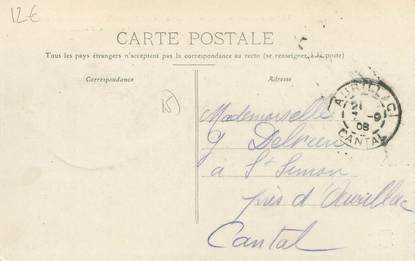 12€
CARTE POSTALE
Tous les pays étrangers n'acceptent pas la correspondance au recto (se renseigner à la poste)
Correspondance
Adresse
15
AURILLAC
21
08
CANTAL
Mademoiselle
à St Simon
près d'Aurillac
Cantal